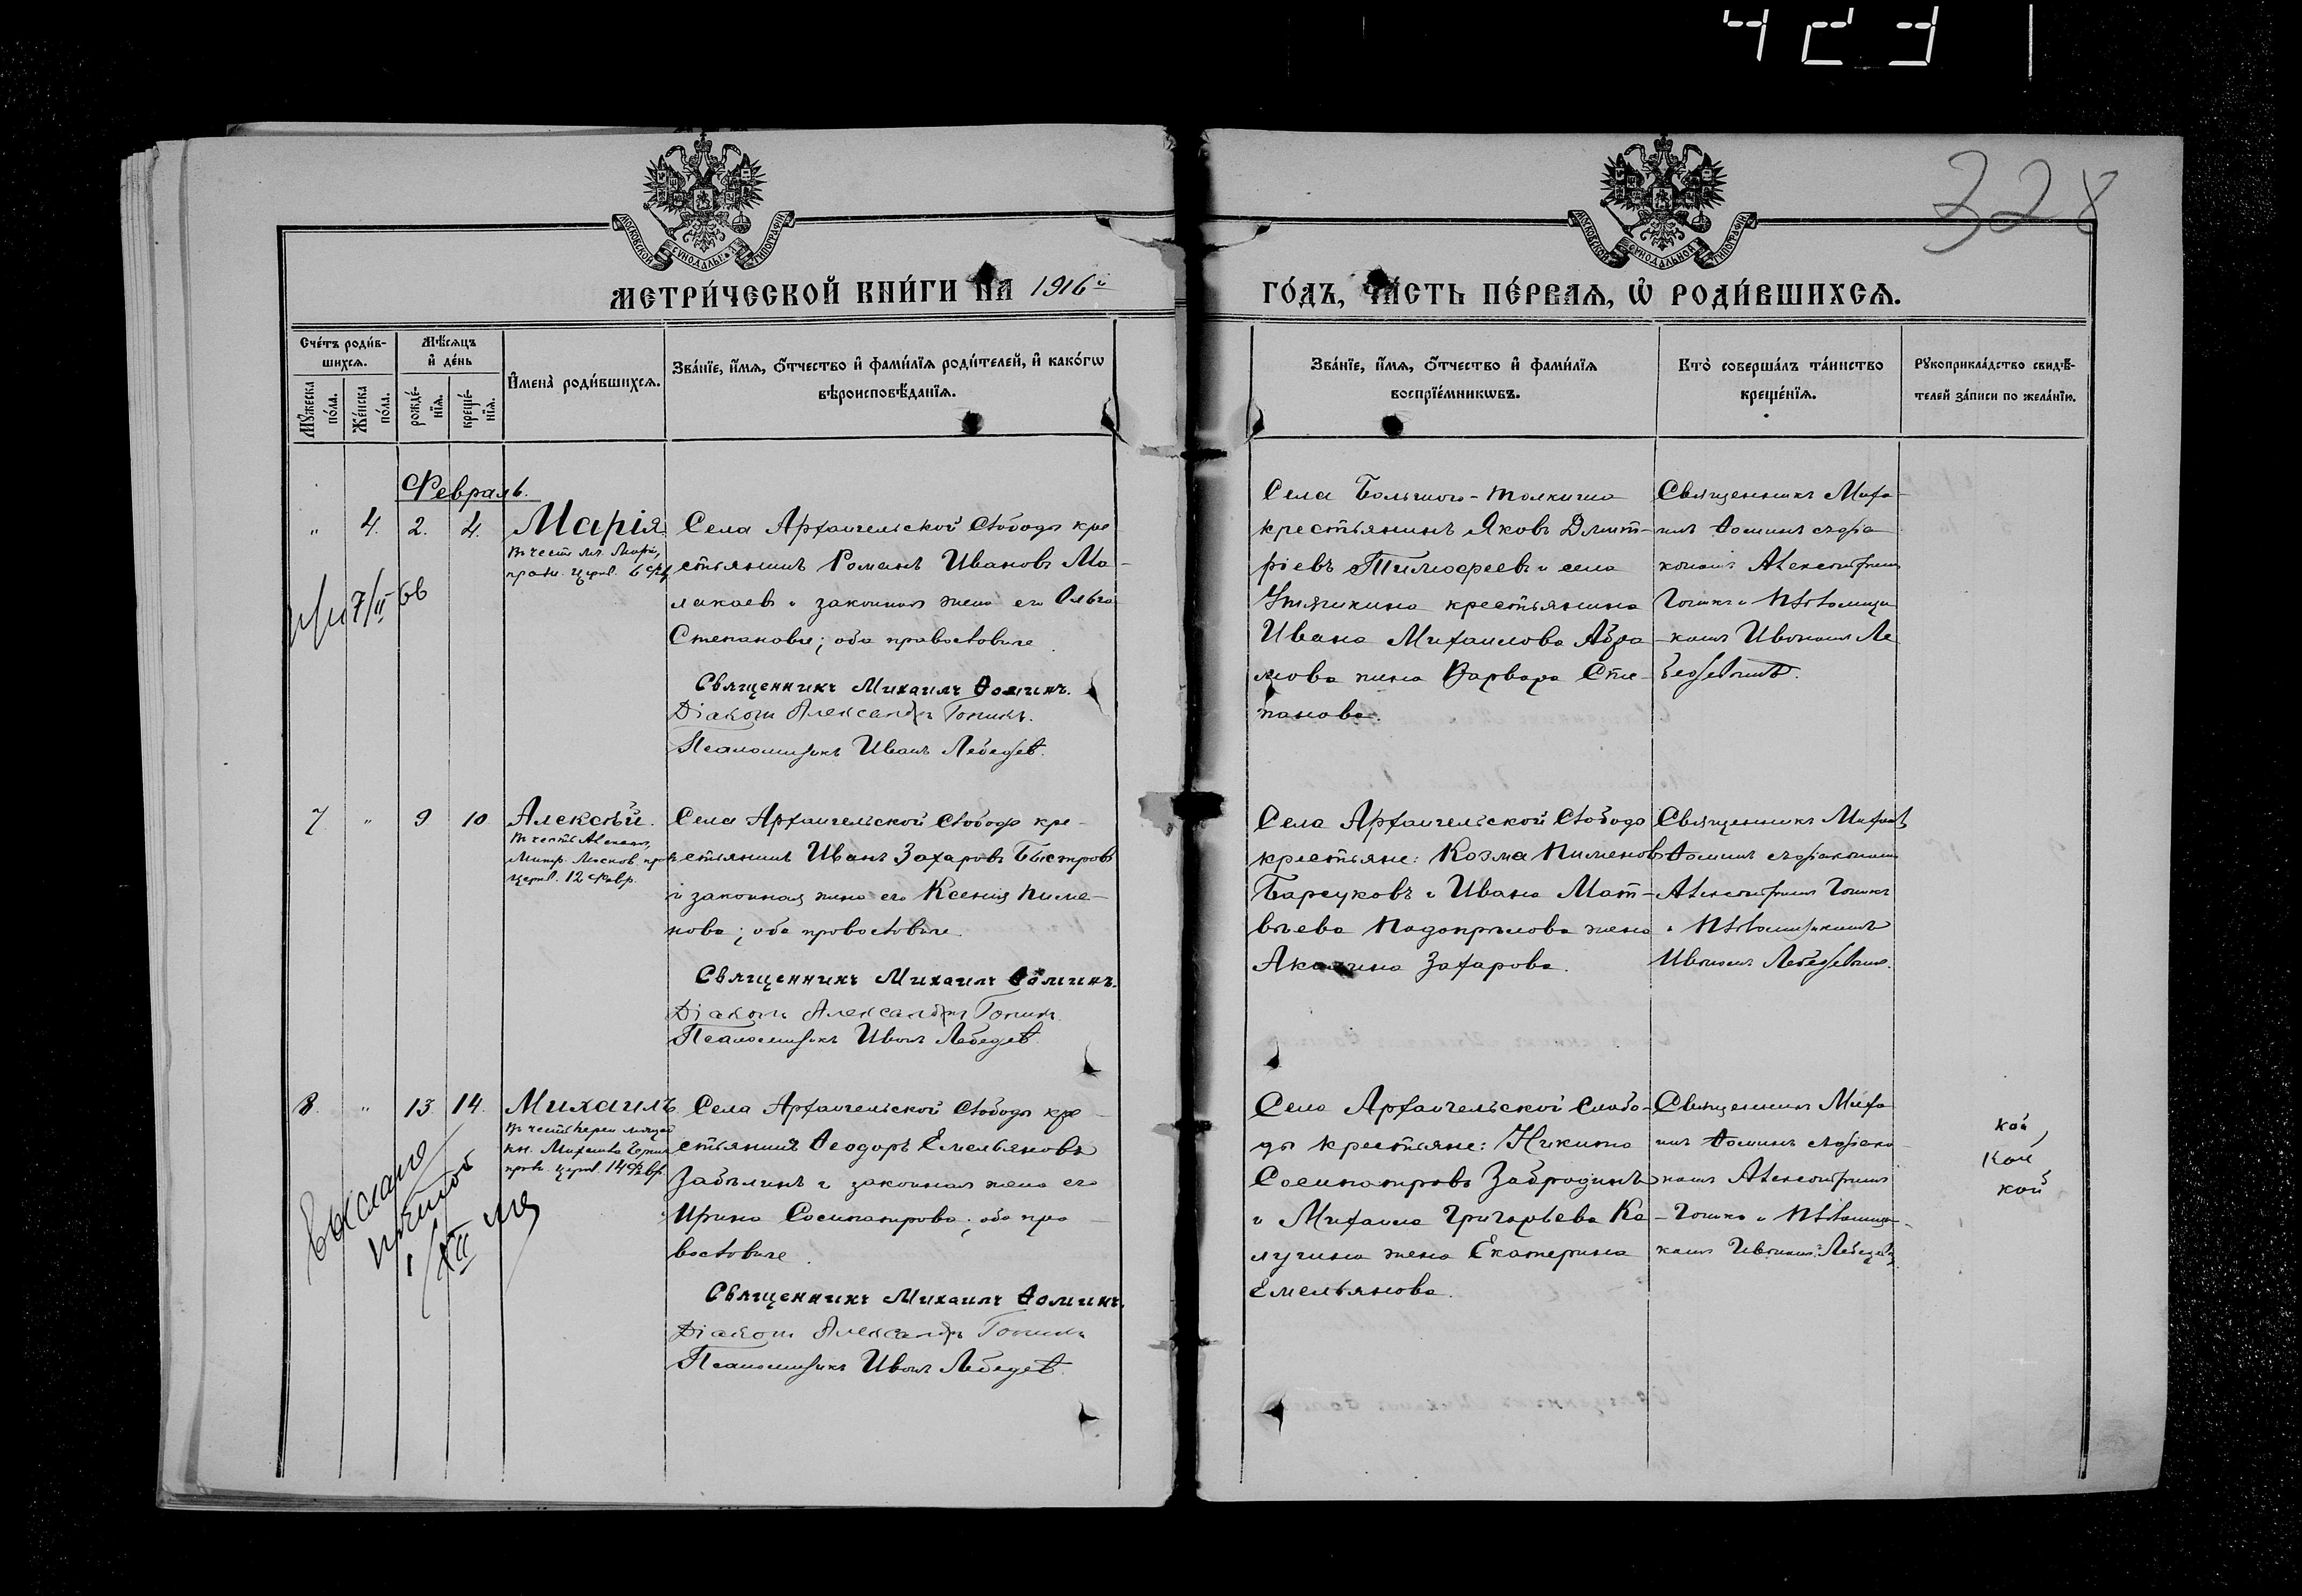 423
328
МОСКОВСКОЙ СѴНОДАЛЬНОЙ ТИПОГРАФІИ
МОСКОВСКОЙ СѴНОДАЛЬНОЙ ТИПОГРАФІИ
МЕТРИ́ЧЕСКОЙ КНИ́ГИ НА 1916й
ГО́ДЪ, ЧА́СТЬ ПЕ́РВАѦ, Ѡ҆ РОДИ́ВШИХСѦ.
Сче́тъ роди́в-
шихсѧ.
Мꙋ́жеска по́ла.
Же́нска по́ла.
Мѣ́сѧцъ
и҆ де́нь
рожде́-
нїѧ.
креще́-
нїѧ.
И҆мена̀ роди́вшихсѧ.
Зва́нїе, и҆́мѧ, ѻ҆́тчество и҆ фами́лїѧ роди́телей, и҆ како́гѡ
вѣроисповѣ́данїѧ.
Зва́нїе, и҆́мѧ, ѻ҆́тчество и҆ фами́лїѧ
воспрїе́мникѡвъ.
Кто̀ соверша́лъ та́инство
креще́нїѧ.
Рꙋкоприкла́дство свидѣ́-
телей за́писи по жела́нїю.
Февраль.
" 4. 2. 4. Марія
празн. церк. 6 Февр
7/II 66
Села Архангельской Слободы кре
стьянинъ Романъ Ивановъ Ма-
лакаевъ и законная жена его Ольга
Степановна; оба православные
Священникъ Михаилъ Ѳоминъ.
Діаконъ Александръ Гонинъ.
Псаломщикъ Иванъ Лебедевъ.
Села Большого-Толкиша
крестьянинъ Яковъ Дмит-
ріевъ Тимофеевъ и села
крестьянина
Ивана Михаилова Абра
мова жена Варвара Сте-
панова.
Священникъ Миха-
илъ Ѳоминъ съ діа
кономъ Александромъ
и Псаломщи
комъ Иваномъ Ле
бедевымъ.
7 " 9 10 Алексѣй.
Въ честь Алексія,
Митр. Москов. пр
церк. 12 Февр.
Села Архангельской Слободы кре-
стьянинъ Иванъ Захаровъ Быстровъ
и законная жена его Ксенія Пиме-
нова; оба православные.
Священникъ Михаилъ Ѳоминъ.
Діаконъ Александръ Гонинъ.
Псаломщикъ Иванъ Лебедевъ.
Села Архангельской Слободы
крестьяне: Козма Пименовъ
Барсуковъ и Ивана Мат-
вѣева Подопрѣлова жена
Акилина Захарова.
Священникъ Михаилъ
Ѳоминъ съ діакономъ
Александромъ
и Псаломщикомъ
Иваномъ Лебедевымъ.
8. " 13. 14. Михаилъ
кн. Михаила Черниг
праз. церк. 14 Февр.
выслано
1/XII
Села Архангельской Слободы кре
стьянинъ Ѳеодоръ Емельяновъ
Забѣлинъ и законная жена его
Ирина Сосипатрова; оба пра
вославные.
Священникъ Михаилъ Ѳоминъ.
Діаконъ Александръ Гонинъ
Псаломщикъ Иванъ Лебедевъ.
Села Архангельской Слобо-
ды крестьяне: Никита
Сосипатровъ Забродинъ
и Михаила Григорьева Ка-
лугина жена Екатерина
Емельянова.
Священникъ Миха
илъ Ѳоминъ съ діако
номъ Александромъ
и Псаломщи-
комъ Иваномъ Лебедевы
кой
кой
кой